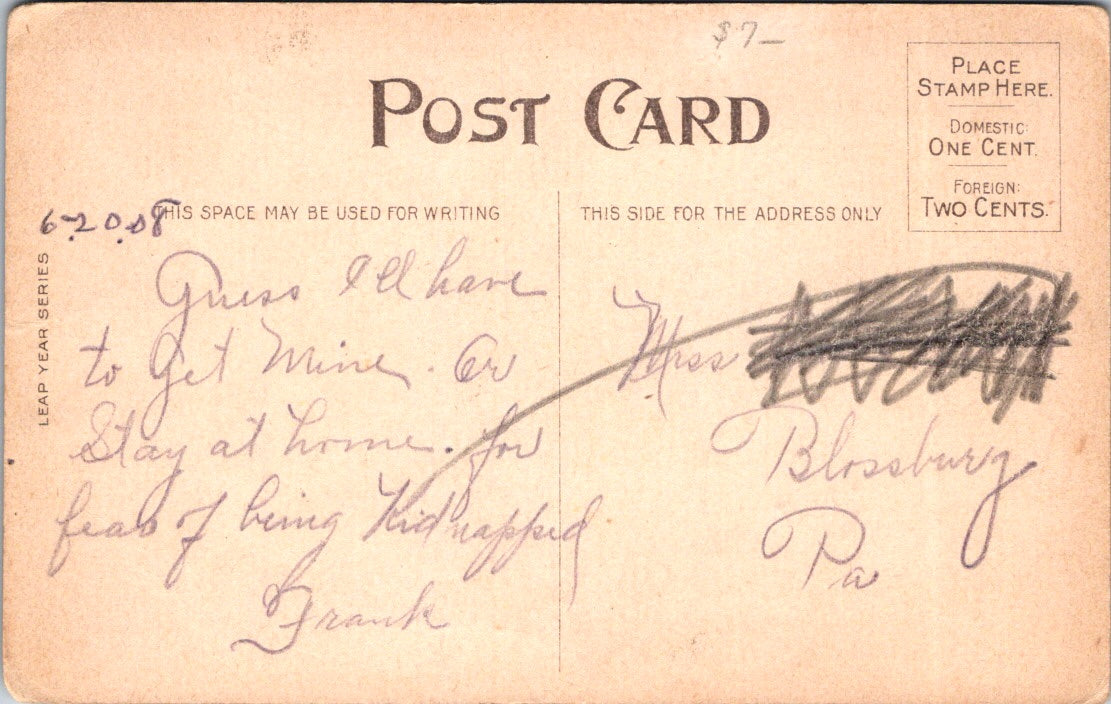 $7–
POST CARD
PLACE
STAMP HERE.
DOMESTIC:
ONE CENT.
FOREIGN:
TWO CENTS.
6-20.08
THIS SPACE MAY BE USED FOR WRITING
THIS SIDE FOR THE ADDRESS ONLY
LEAP YEAR SERIES
Guess I'll have
to Get Mine. Or
Stay at home. for
fear of being Kidnapped
Frank
Miss
Blossburg
Pa